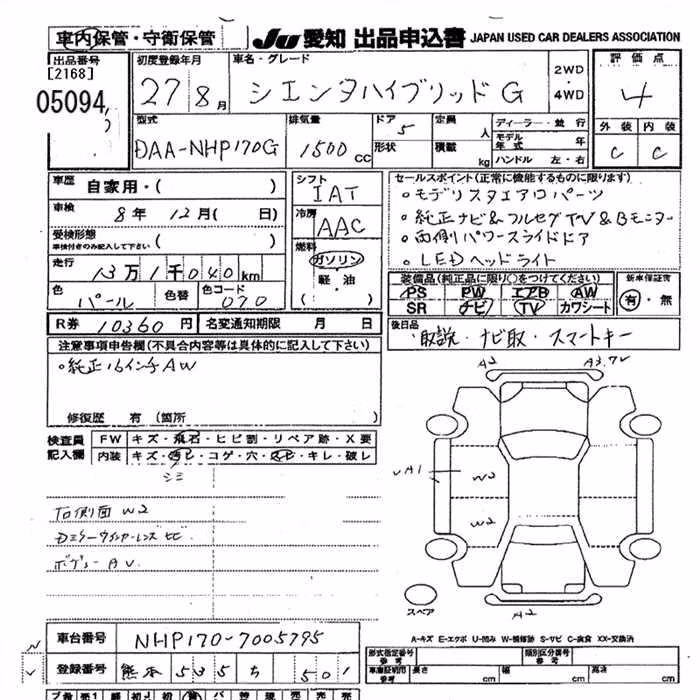 車内保管・守衛保管
JU 愛知 出品申込書 JAPAN USED CAR DEALERS ASSOCIATION
出品番号 初度登録年月 車名・グレード 評価点
[2168]
05094 27 8月 シエンタハイブリッド G 2WD ・ 4WD 4
型式 排気量 ドア 5 定員 人 ディーラー・並行 外装 内装
DAA-NHP170G 1500 CC 形状 積載 kg モデル年式 年 C C
ハンドル 左・右
車歴 自家用・( ) シフト IAT セールスポイント(正常に機能するものに限ります)
車検 8年 12月( 日) 冷房 AAC 。モデリスタエアロパーツ
受検形態 ( ) 。純正ナビ&フルセグTV&Bモニター
車検付きのみ記入して下さい
燃料 ガソリン ・ 軽油 。両側パワースライドドア
走行 13万1千040km 。LEDヘッドライト
色 パール 色替 色コード 070 装備品(純正品に限り○をつけてください) 新車保証書
PS PW エアB AW 有・無
SR ナビ TV カワシート
R券 10360円 名変通知期限 月 日 後日品
・取説・ナビ取・スマートキー
注意事項申告欄(不具合内容等は具体的に記入して下さい)
。純正16インチAW
A2 A3.7V
修復歴 有(箇所 )
検査員記入欄 FW キズ・飛石・ヒビ割・リペア跡・X要
内装 キズ・汚レ・コゲ・穴・スレ・キレ・破レ
シミ
UA1 W2
W2
右側面 W2
Dミラーウインカーレンズ ヒビ
ボディー AV
スペア A2
A-キズ E-エクボ U-凹み W-補修跡 S-サビ C-腐食 XX-交換済
車台番号 NHP170-7005795
型式指定番号 参考 類別区分番号 参考
登録番号 熊本 535 ち 501
車庫証明用 参考 長さ cm 幅 cm 高さ cm